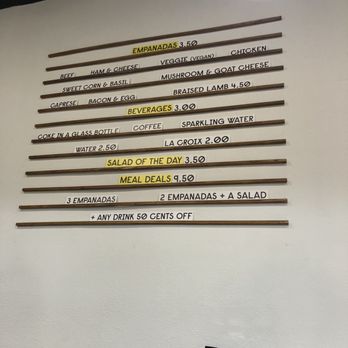 EMPANADAS 3.50
BEEF HAM & CHEESE VEGGIE (VEGAN) CHICKEN
SWEET CORN & BASIL MUSHROOM & GOAT CHEESE
CAPRESE BACON & EGG BRAISED LAMB 4.50
BEVERAGES 3.00
COKE IN A GLASS BOTTLE COFFEE SPARKLING WATER
WATER 2.50 LA CROIX 2.00
SALAD OF THE DAY 3.50
MEAL DEALS 9.50
3 EMPANADAS 2 EMPANADAS + A SALAD
+ ANY DRINK 50 CENTS OFF